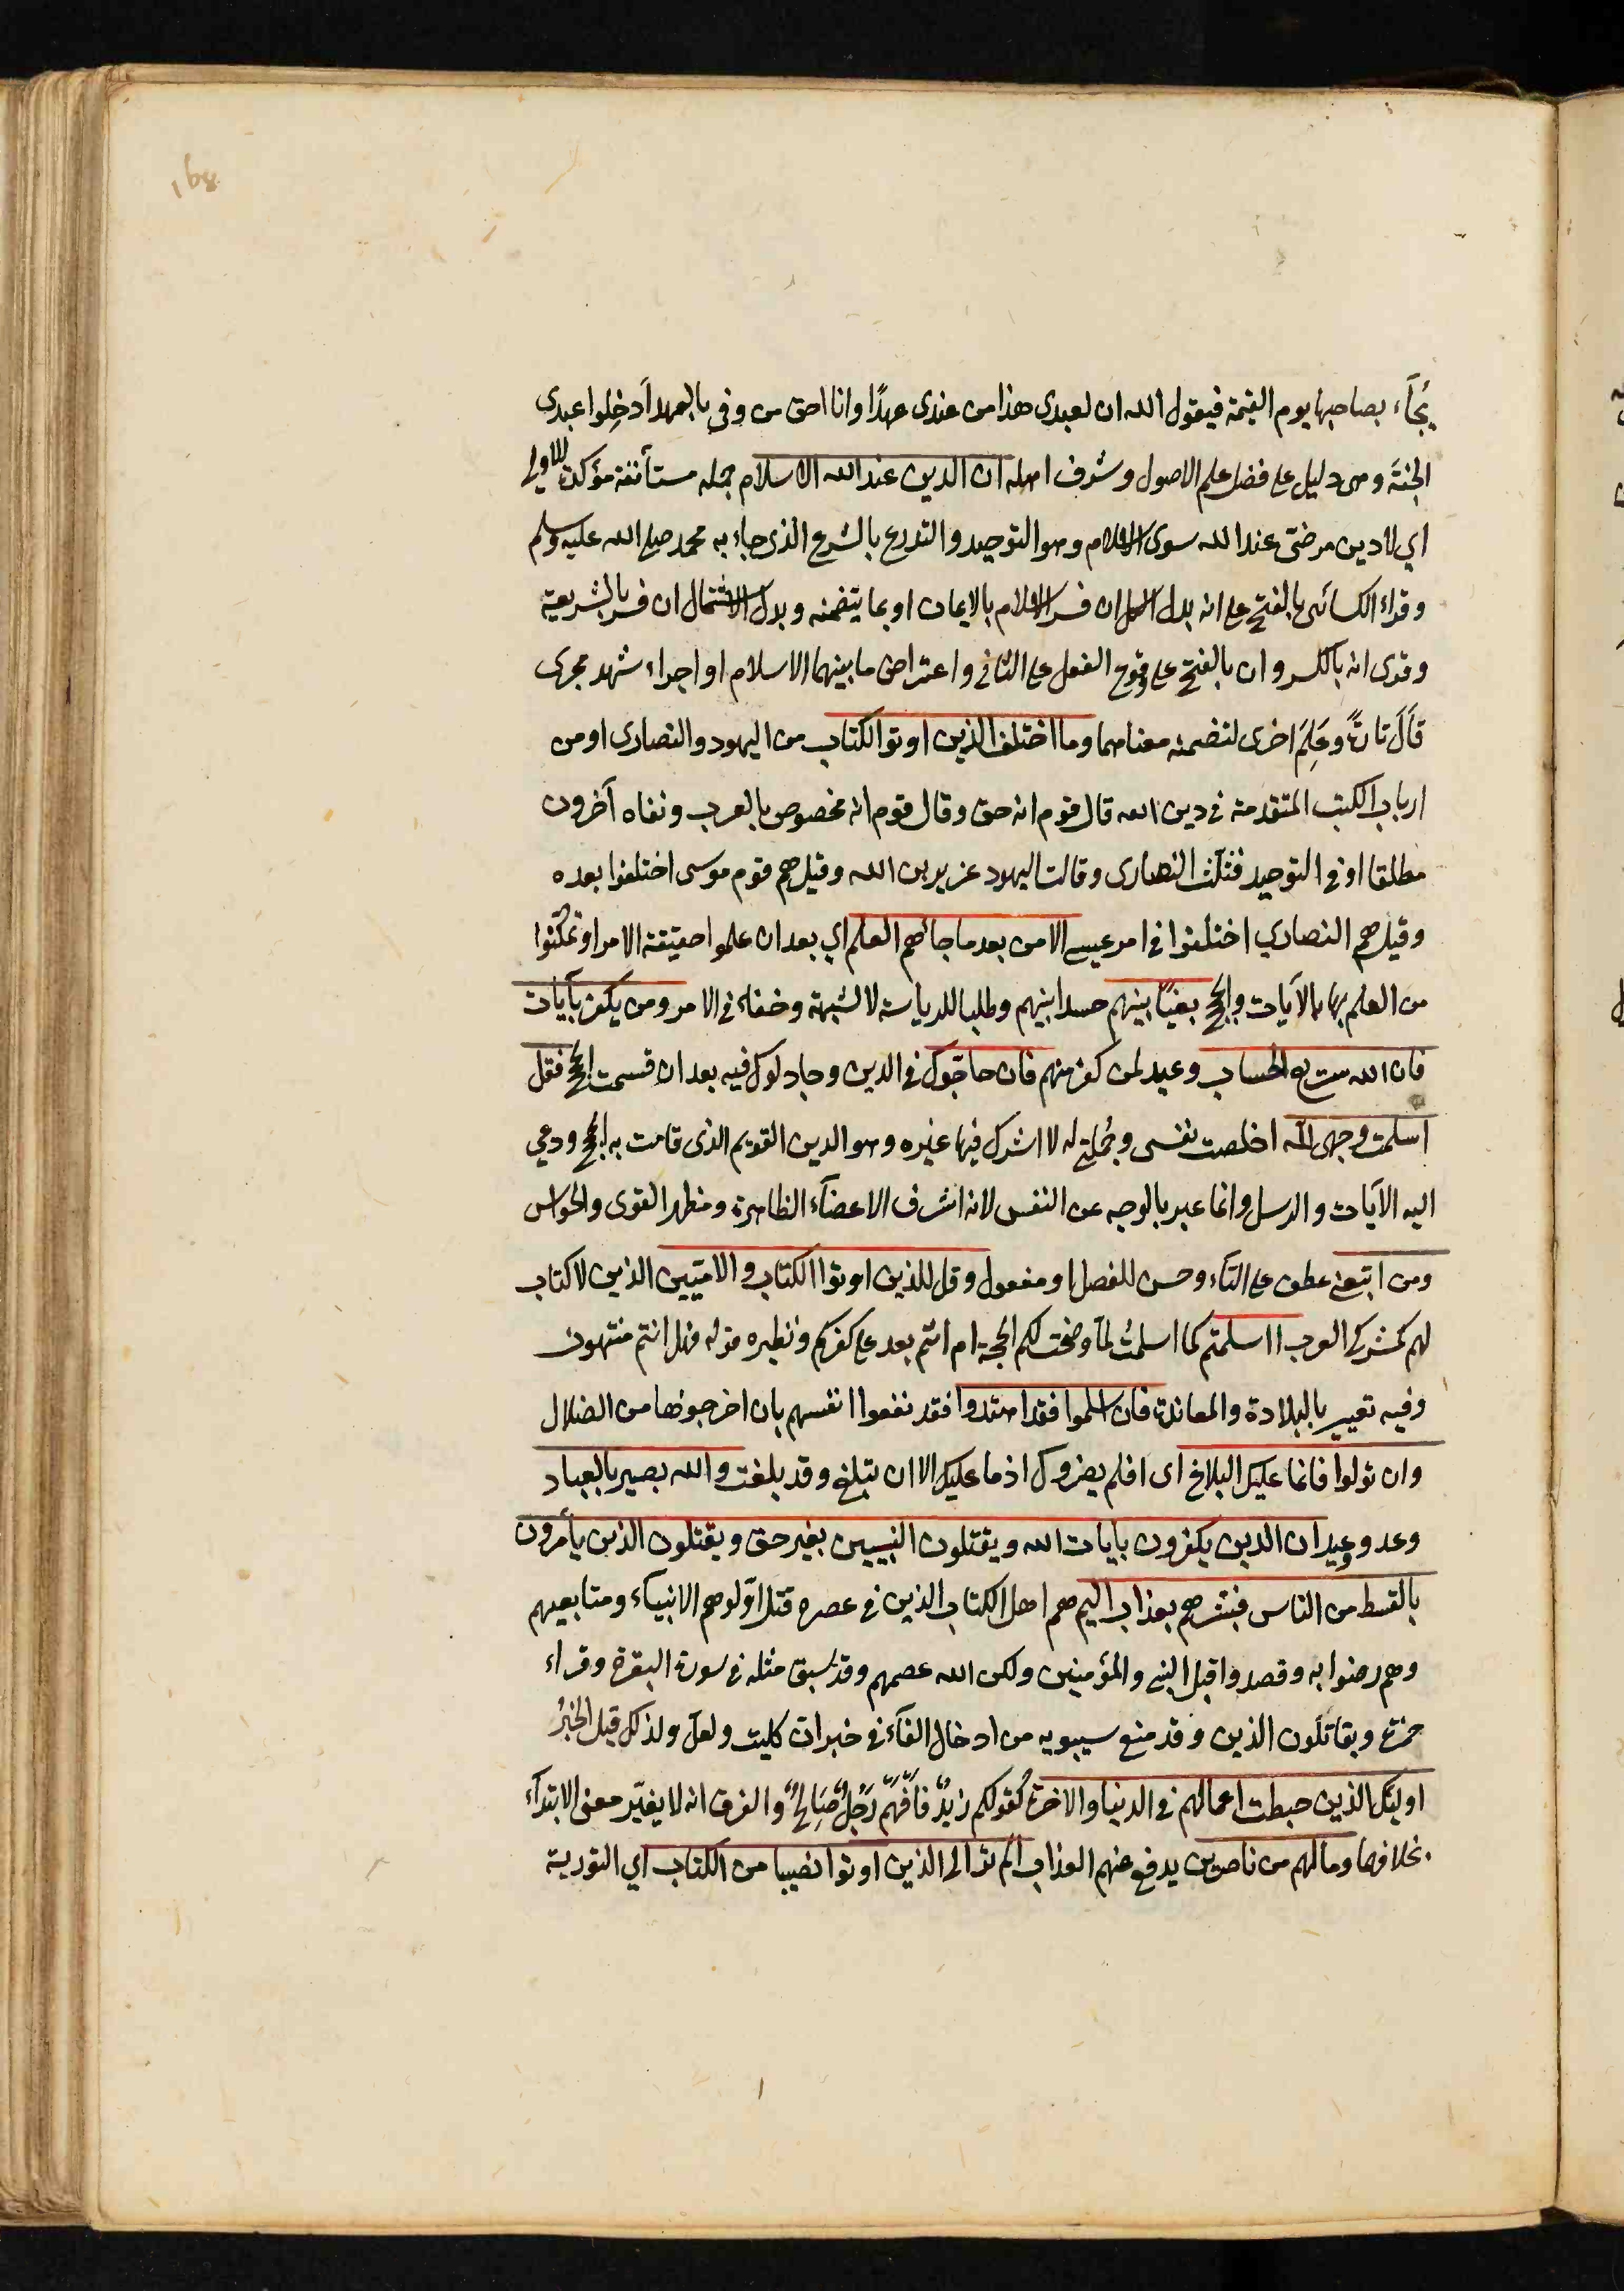 168
يُجَآء بصاحبها يوم القيمة فيقول الله ان لعبدى هذا من عندى عهدًا وانا احق من وفى بالعهد اَدخِلوا عبدى
الجنَّةَ وهى دليل على فضل علم الاصول وشرف اهله ان الدين عند الله الاسلام جمله مستأنفة مؤكدة للاولى
اي لا دين مرضىّ عند الله سوى الاسلام وهو التوحيد والتدرع بالشرع الذى جاء به محمد صلى الله عليه وسلم
وقراء الكسائى بالفتح على انه بدل الكل ان فسر الاسلام بالايمان او بما يتضمنه وبدل الاشتمال ان فسر بالشريعة
وقرى انه بالكسر وان بالفتح على وقوع الفعل على الثانى واعتراض ما بينهما الاسلام او اجراء شهد مجرى
قَالَ تارةً وعَلِمَ اخرى لتضمنه معناهما وما اختلف الذين اوتوا الكتاب من اليهود والنصارى او من
ارباب الكتب المتقدمة فى دين الله قال قوم انه حق وقال قوم انه مخصوص بالعرب ونفاه آخرون
مطلقا او فى التوحيد فثلّث النصارى وقالت اليهود عزير بن الله وقيل هم قوم موسى اختلفوا بعده
وقيل هم النصاري اختلفوا فى امر عيسى الا من بعد ما جائهم العلم اي بعد ان علموا حقيقة الامر او تمكّنوا
من العلم بها بالآيات والحجج بغيًا بينهم حسدا بينهم وطلبا للرياسة لا لشبهة وخفاء فى الامر ومن يكفر بآيات
فان الله سريع الحساب وعيد لمن كفر منهم فان حاجّوك فى الدين وجادلوك فيه بعد ان قسمت الحجج فقل
اسلمت وجهى لله اخلصت نفسى وجُملتى له لا اشرك فيها غيره وهو الدين القويم الذى قامت به الحجج ودعي
اليه الآيات والرسل وانما عبر بالوجه عن النفس لانه اشرف الاعضآء الظاهرة ومظهر القوى والحواس
ومن اتبعنى عطف على التآء وحسن للفصل او مفعول وقل للذين اوتوا الكتاب والاميّين الذين لا كتاب
لهم كمشركى العرب ااسلمتم كما اسلمتُ لمّا وضحت لكم الحجة ام انتم بعد على كفركم ونظيره قوله فهل انتم منتهون
وفيه تعيير بالبلادة والمعاندة فان اسلموا فقد اهتدوا فقد نفعوا انفسهم بان اخرجوها من الضلال
وان تولوا فانما عليك البلاغ اى افلم يضروك اذ ما عليك الا ان تبلغ وقد بلغت والله بصير بالعباد
وعد ووعيد ان الدين يكفرون بآيات الله ويقتلون النبيين بغير حق ويقتلون الذين يأمرون
بالقسط من الناس فبشرهم بعذاب اليم هم اهل الكتاب الذين فى عصره قتل اوّلوهم الانبيآء ومتابعيهم
وهم رضوا به وقصدوا قبل النبى والمؤمنين ولكن الله عصمهم وقد سبق مثله فى سورة البقرة وقراء
حمزة ويقاتلون الذين وقد منع سيبويه من ادخال الفآء فى خبر ان كليت ولعل ولذلك قيل الخبرُ
اوليك الذين حبطت اعمالهم فى الدنيا والاخرة كقولكم زيدٌ فافهم رَجلٌ صَالحٌ والفرق انه لا يغيّر معنى الابتدآء
بخلافهما وما لهم من ناصرين يدفع عنهم العذاب الم تر الى الذين اوتوا نصيبا من الكتاب اي التورية